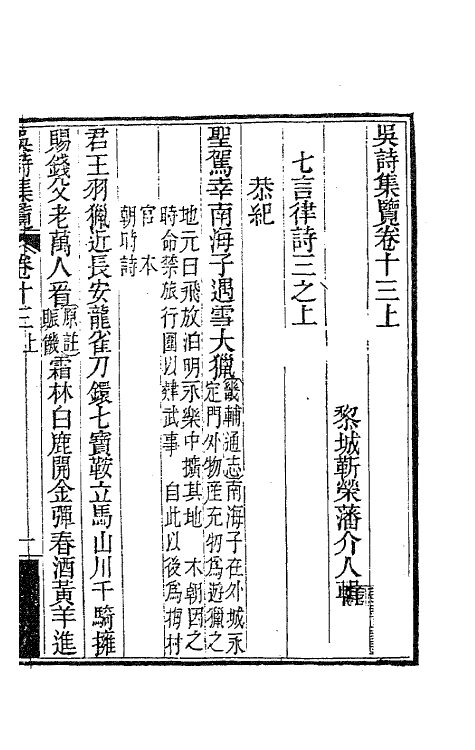 吳詩集覽卷十三上
黎城靳榮藩介人輯
七言律詩三之上
恭紀
聖駕幸南海子遇雪大獵畿輔通志南海子在外城永
定門外物産充牣爲遊獵之
地元日飛放泊明永樂中擴其地 本朝因之
時命禁旅行圍以肄武事 自此以後爲梅村
官本
朝時詩
君王羽獵近長安龍雀刀鐶七寶鞍立馬山川千騎擁
賜錢父老萬人看原註
賑饑霜林白鹿開金彈春酒黃羊進
吳詩集覽 卷十三上 一